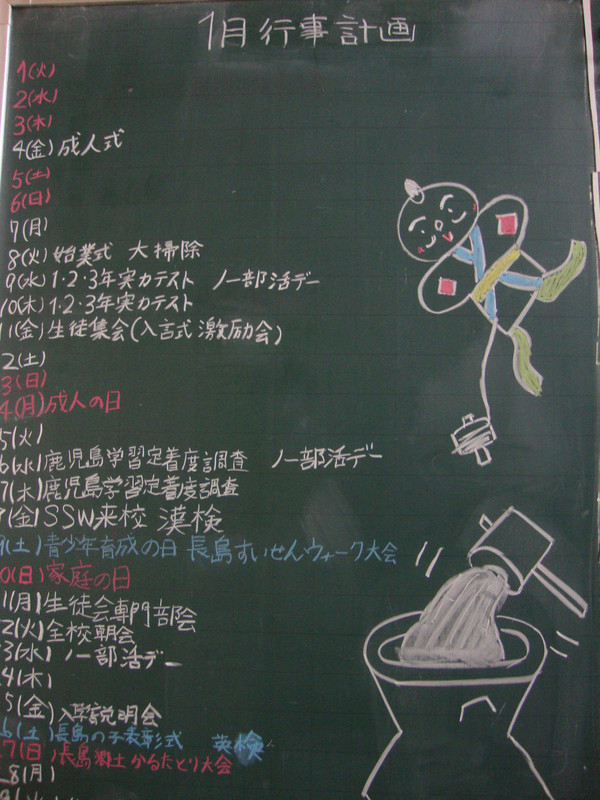 1月行事計画
1(火)
2(水)
3(木)
4(金) 成人式
5(土)
6(日)
7(月)
8(火) 始業式 大掃除
9(水) 1・2・3年実力テスト ノー部活デー
10(木) 1・2・3年実力テスト
1(金) 生徒集会(入言式 激励会)
2(土)
3(日)
4(月) 成人の日
5(火)
6(水) 鹿児島学習定着度調査 ノー部活デー
7(木) 鹿児島学習定着度調査
(金) SSW来校 漢検
9(土) 青少年育成の日 長島すいせんウォーク大会
0(日) 家庭の日
1(月) 生徒会専門部会
2(火) 全校朝会
3(水) ノー部活デー
4(木)
5(金) 入学説明会
6(土) 長島の子表彰式 英検
7(日) 長島郷土かるたとり大会
8(月)